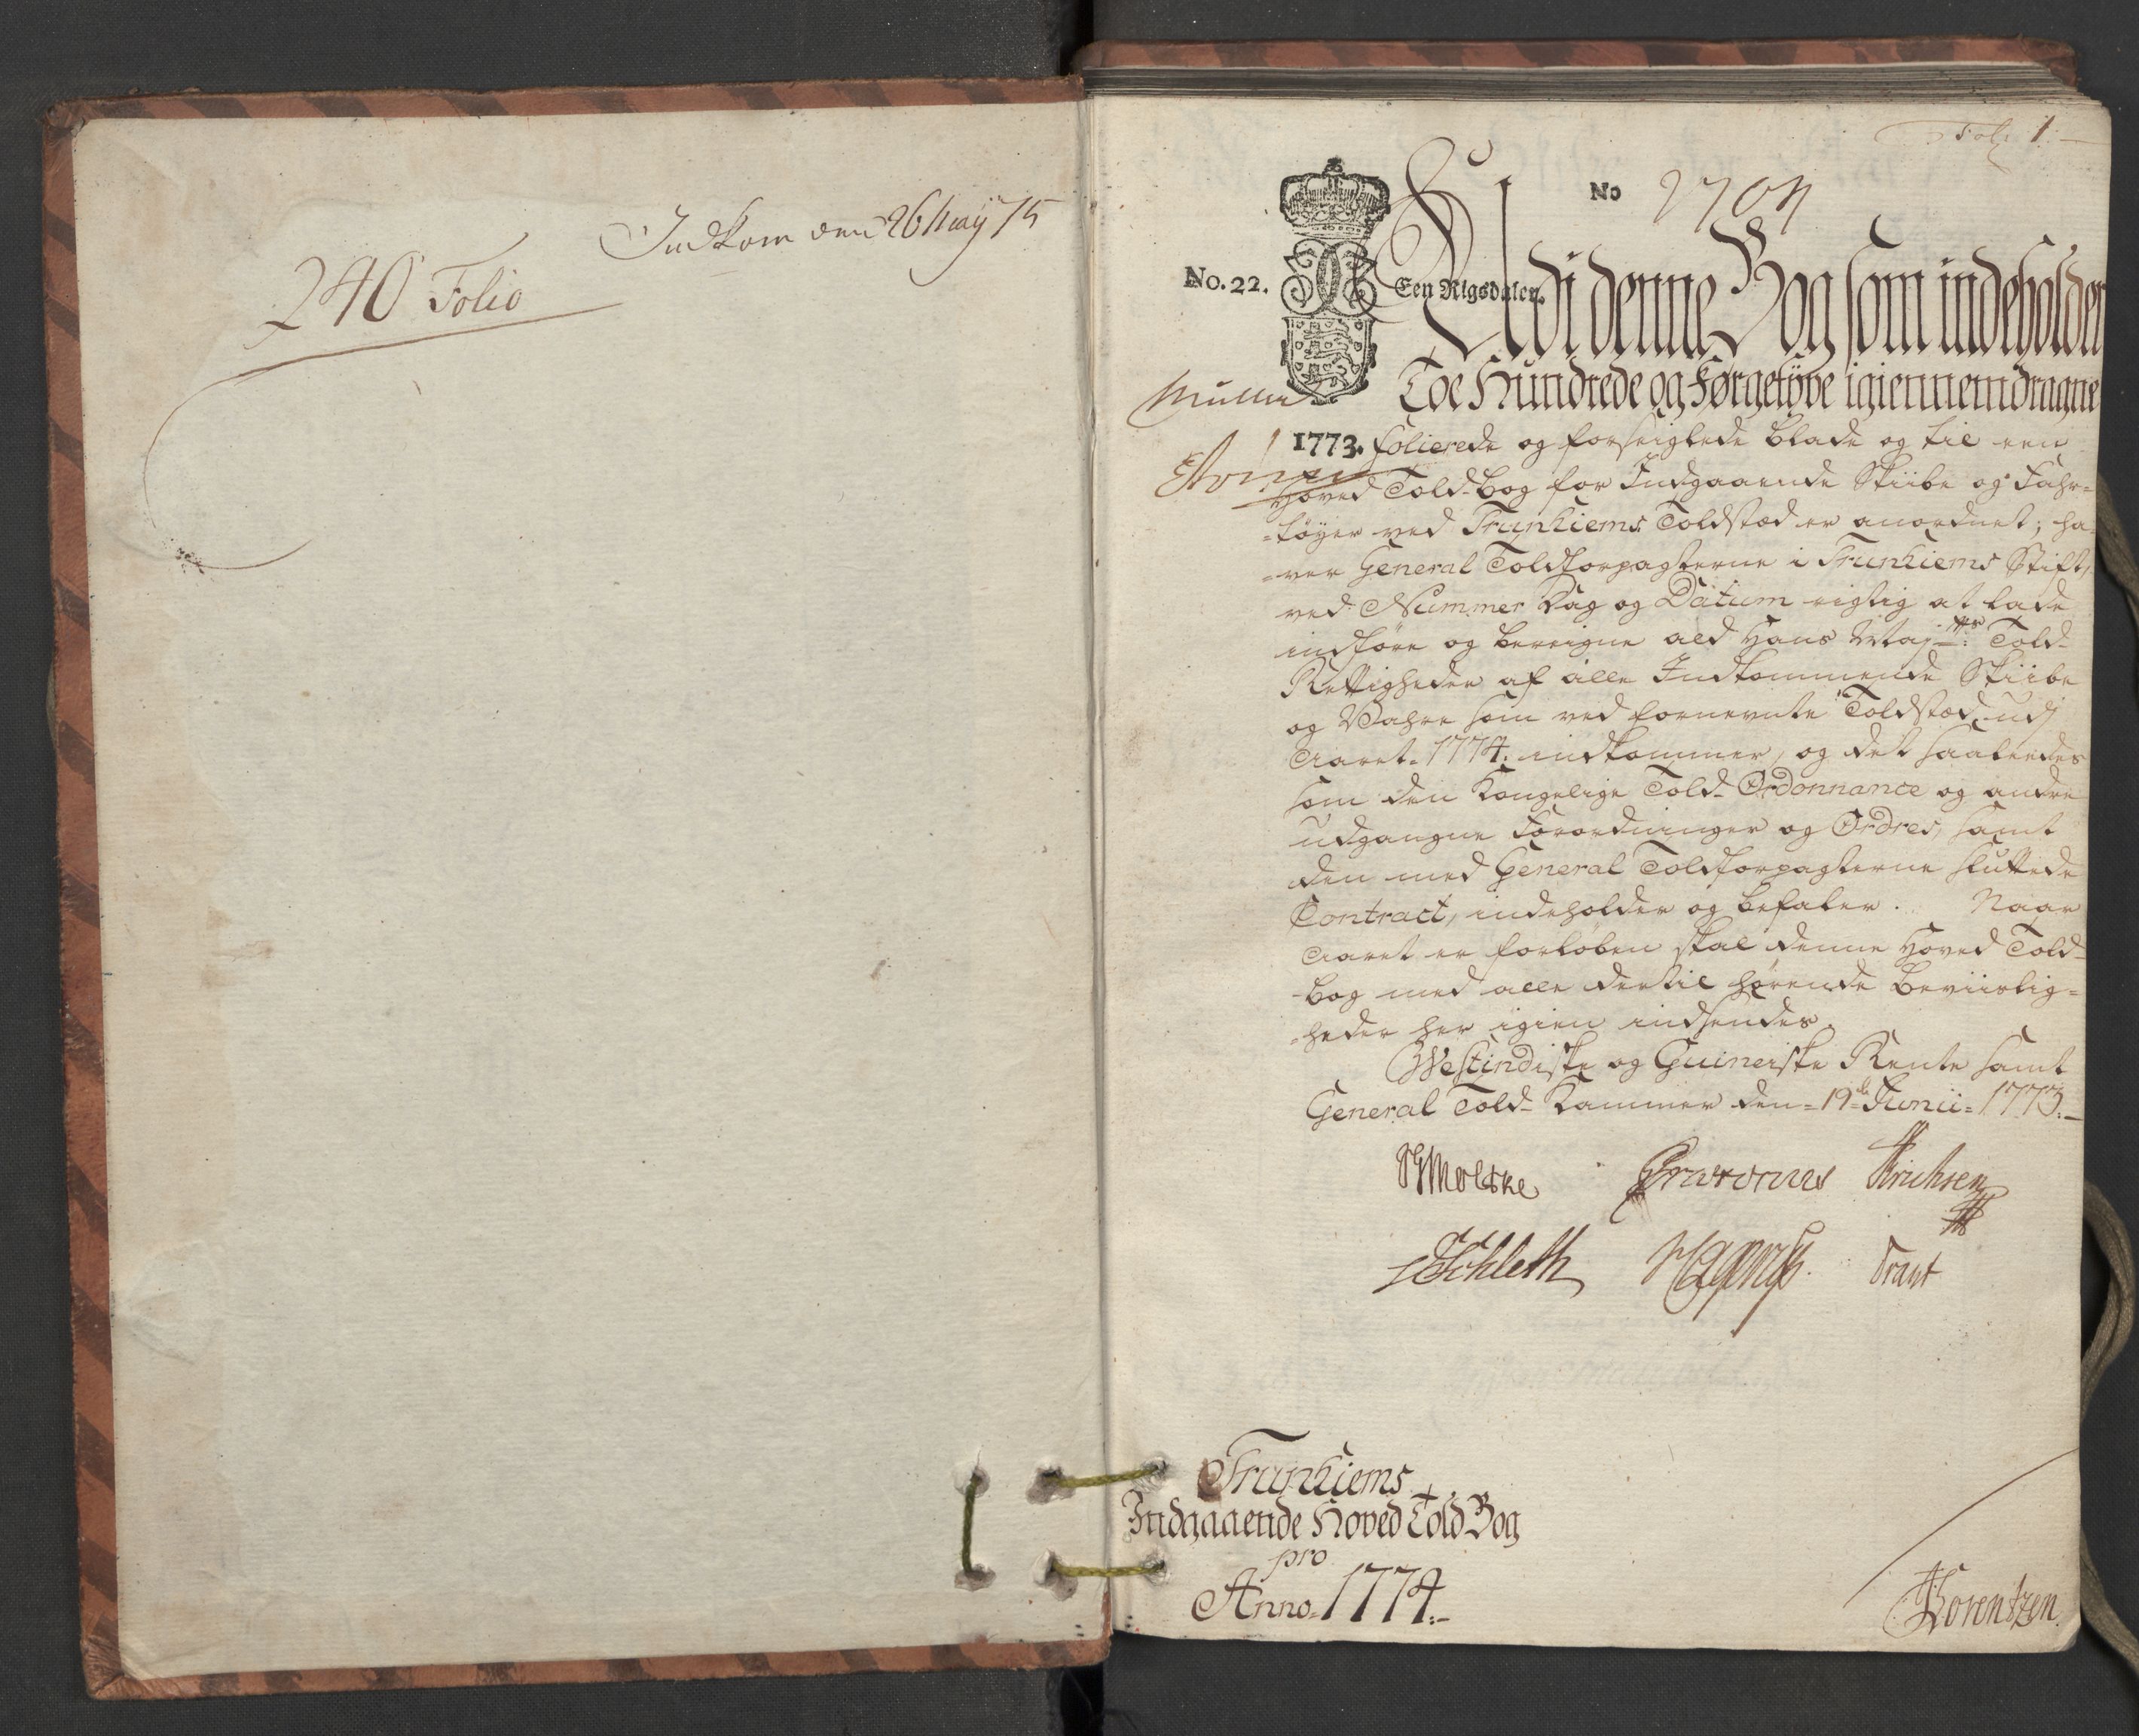 Indkom den 26 May 75
240 Folio
Fol: 1.
No 2704
No. 22.
Een Rigsdaler.
Udi denne Bog som indeholder
Toe Hundrede og Førgetÿve igiennemdragne
Müller
1773. folierede og forseiglede blade og til een
Hoved Told-bog for Indgaaende Skiibe og Fahr-
-tøyer ved Trunhiems Toldsted er anordnet; ha-
-ver General Toldforpagterne i Trunhiems Stift,
ved Nummer Dag og Datum rigtig at lade
indføre og bereigne ald Hans Maj:ts Told-
Rettigheder af alle Indkommende Skiibe
og Vahre som ved fornevnte Toldsted udj
Aaret 1774. indkommer, og det saaledes
som den Kongelige Told-Ordonnance og andre
udgangne Forordninger og Ordres, samt
den med General Toldforpagterne sluttede
Contract, indeholder og befaler. Naar
Aaret er forløben skal denne Hoved Told-
-bog med alle dertil hørende Beviislig-
-heder her igien indsendes.
Westindiske og Guineiske Rente samt
General Told-Kammer den 19de Junii 1773.
Moltke Erichsen
Schleth Prant
Trunhiems
Indgaaende Hoved Told Bog
pro
Anno 1774.
Lorentzen.